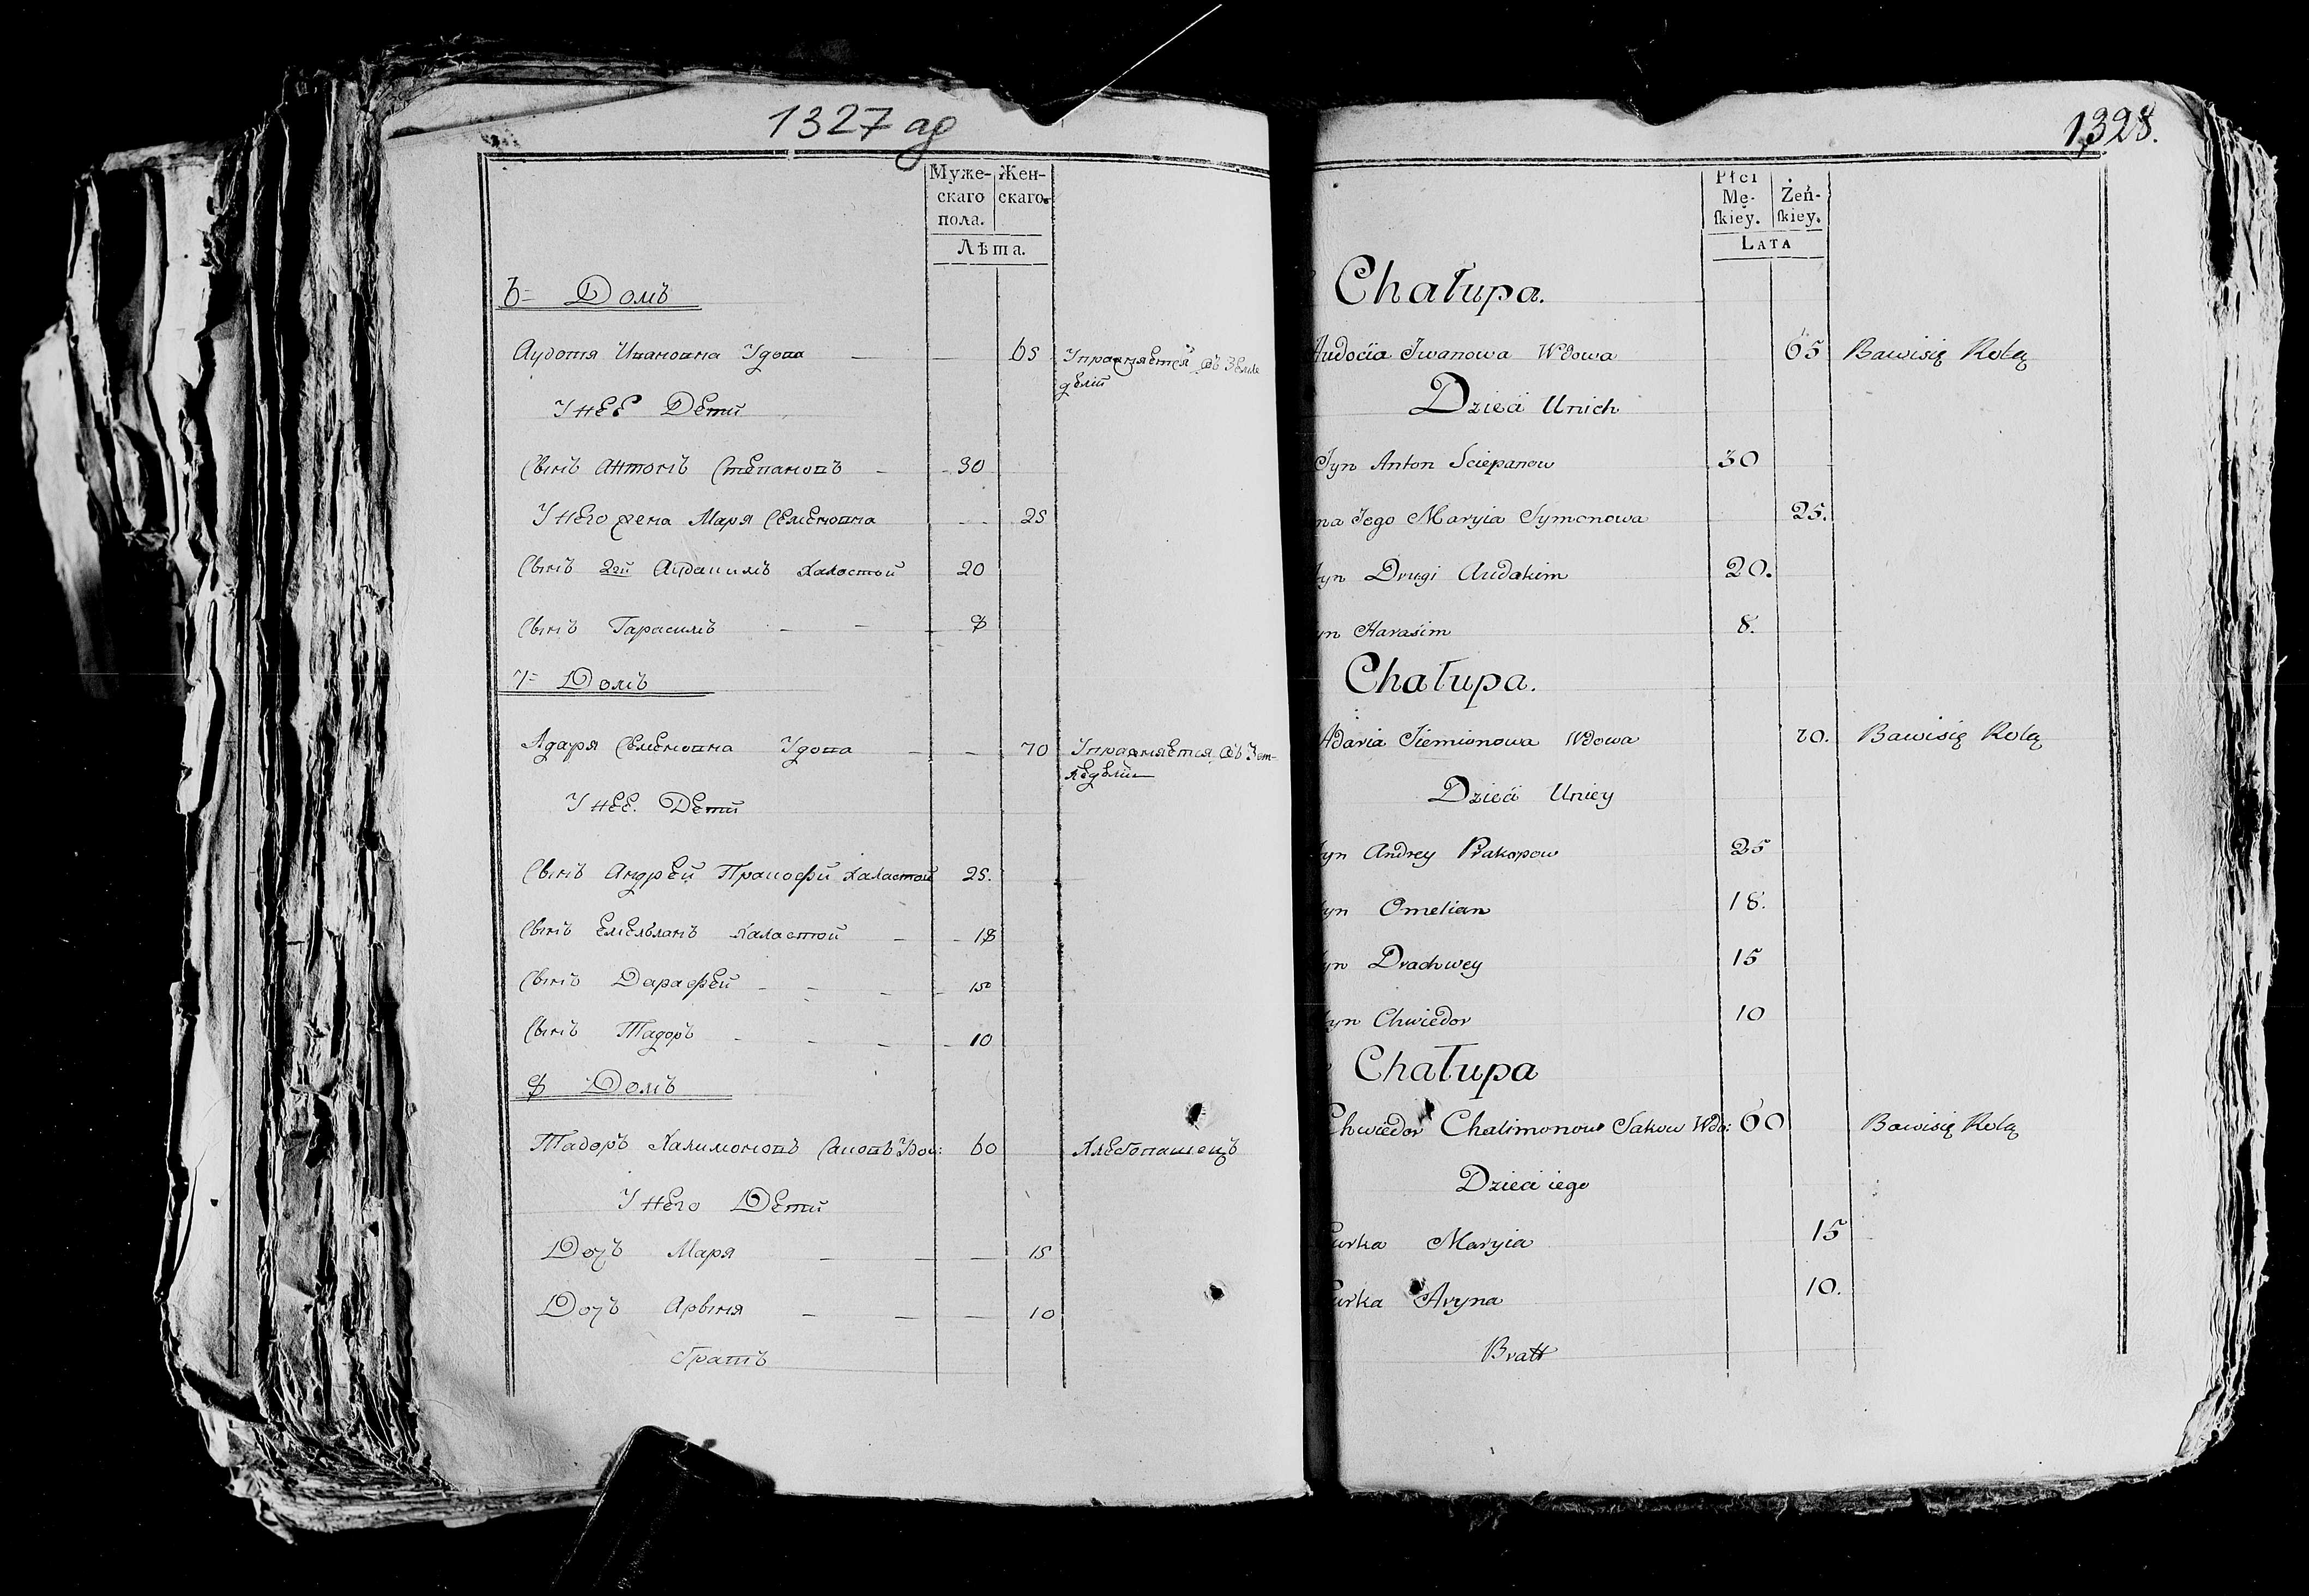 1327 ag
Муже-
скаго
пола.
Жен-
скаго.
Лѣта.
6= Домъ
Аудотя Ивановна Удова 65 Управляется въ Земле
дѣліи
У НЕЕ Дети
Сынъ Антонъ Степановъ 30
У Него жена Маря Семеновна 25
Сынъ 2ой Аудакимъ Халостой 20
Сынъ Гарасимъ 8
7= Домъ
Адаря Семеновна Удова 70 Управляется въ Зем-
ледѣліи
У НЕЕ. Дети
Сынъ Андрей Пракофи Халастой 25.
Сынъ Емельянъ Халастой 18
Сынъ Дарафей 15
Сынъ Тадоръ 10
8 Домъ
Тадоръ Халимоновъ Саковъ Удов: 60 Хлебопашецъ
У Него Дети
Дочъ Маря 15
Дочъ Арыня 10
братъ
1328.
Płci
Mę-
ſkiey.
Żeń-
ſkiey.
LATA
Chałupa.
Audocia Iwanowa Wdowa 65 Bawisię Rolą
Dzieci Unich
Syn Anton Sciepanow 30
na Iego Maryia Symonowa 25.
Syn Drugi Audakim 20.
yn Harasim 8.
Chałupa.
Adaria Siemionowa Wdowa 70. Bawisię Rolą
Dzieci Uniey
Syn Andrey Prakopow 25
Syn Omelian 18.
yn Drachwey 15
Syn Chwiedor 10
Chałupa
Chwiedor Chalimonow Sakow Wdo: 60 Bawisię Rolą
Dzieci iego
Curka Maryia 15
Curka Aryna 10.
Bratt